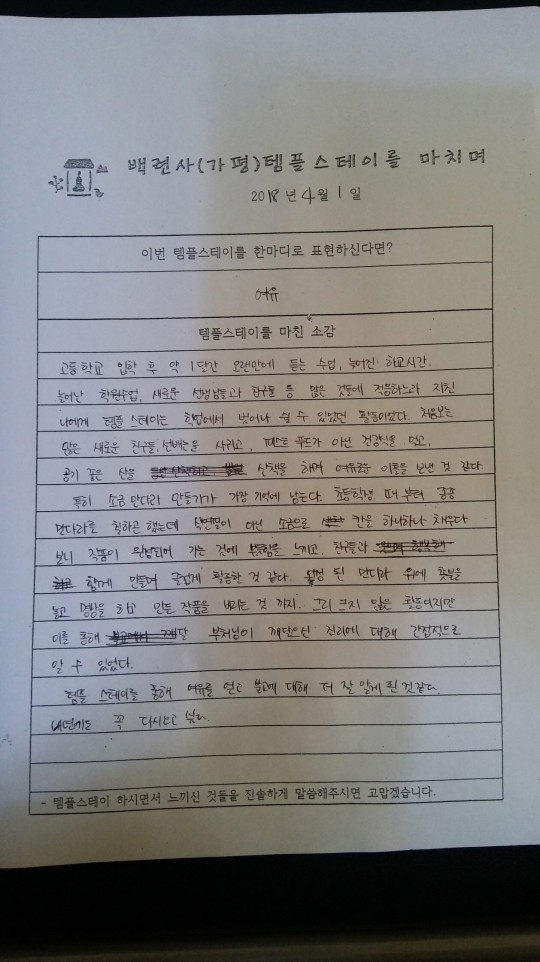 백련사(가평)템플스테이를 마치며
2018년 4월 1일
이번 템플스테이를 한마디로 표현하신다면?
여유
템플스테이를 마친 소감
고등학교 입학 후 약 1달간 오랜만에 듣는 수업, 늦어진 하교시간,
늘어난 학원수업, 새로운 선생님들과 친구들 등 많은 것들에 적응하느라 지친
나에게 템플 스테이는 학업에서 벗어나 쉴 수 있었던 활동이었다. 처음보는
많은 새로운 친구들, 선배들을 사귀고, 패스트 푸드가 아닌 건강식을 먹고,
공기 좋은 산을 산책을 하며 여유로운 이틀을 보낸 것 같다
특히 소금 만다라 만들기가 가장 기억에 남는다. 초등학생 때부터 종종
만다라를 칠하곤 했는데 색연필이 아닌 소금으로 칸을 하나하나 채우다
보니 작품이 완성되어 가는 것에 뿌듯함을 느끼고, 친구들과
함께 만들며 즐겁게 활동한 것 같다. 완성 된 만다라 위에 촛불을
놓고 명상을 하고 만든 작품을 버리는 것 까지. 그리 크지 않은 활동이지만
이를 통해 부처님이 깨달으신 진리에 대해 간접적으로
알 수 있었다.
템플 스테이를 통해 여유를 얻고 불교에 대해 더 잘 알게 된 것같다.
내년에도 꼭 다시오고 싶다.
- 템플스테이 하시면서 느끼신 것들을 진솔하게 말씀해주시면 고맙겠습니다.